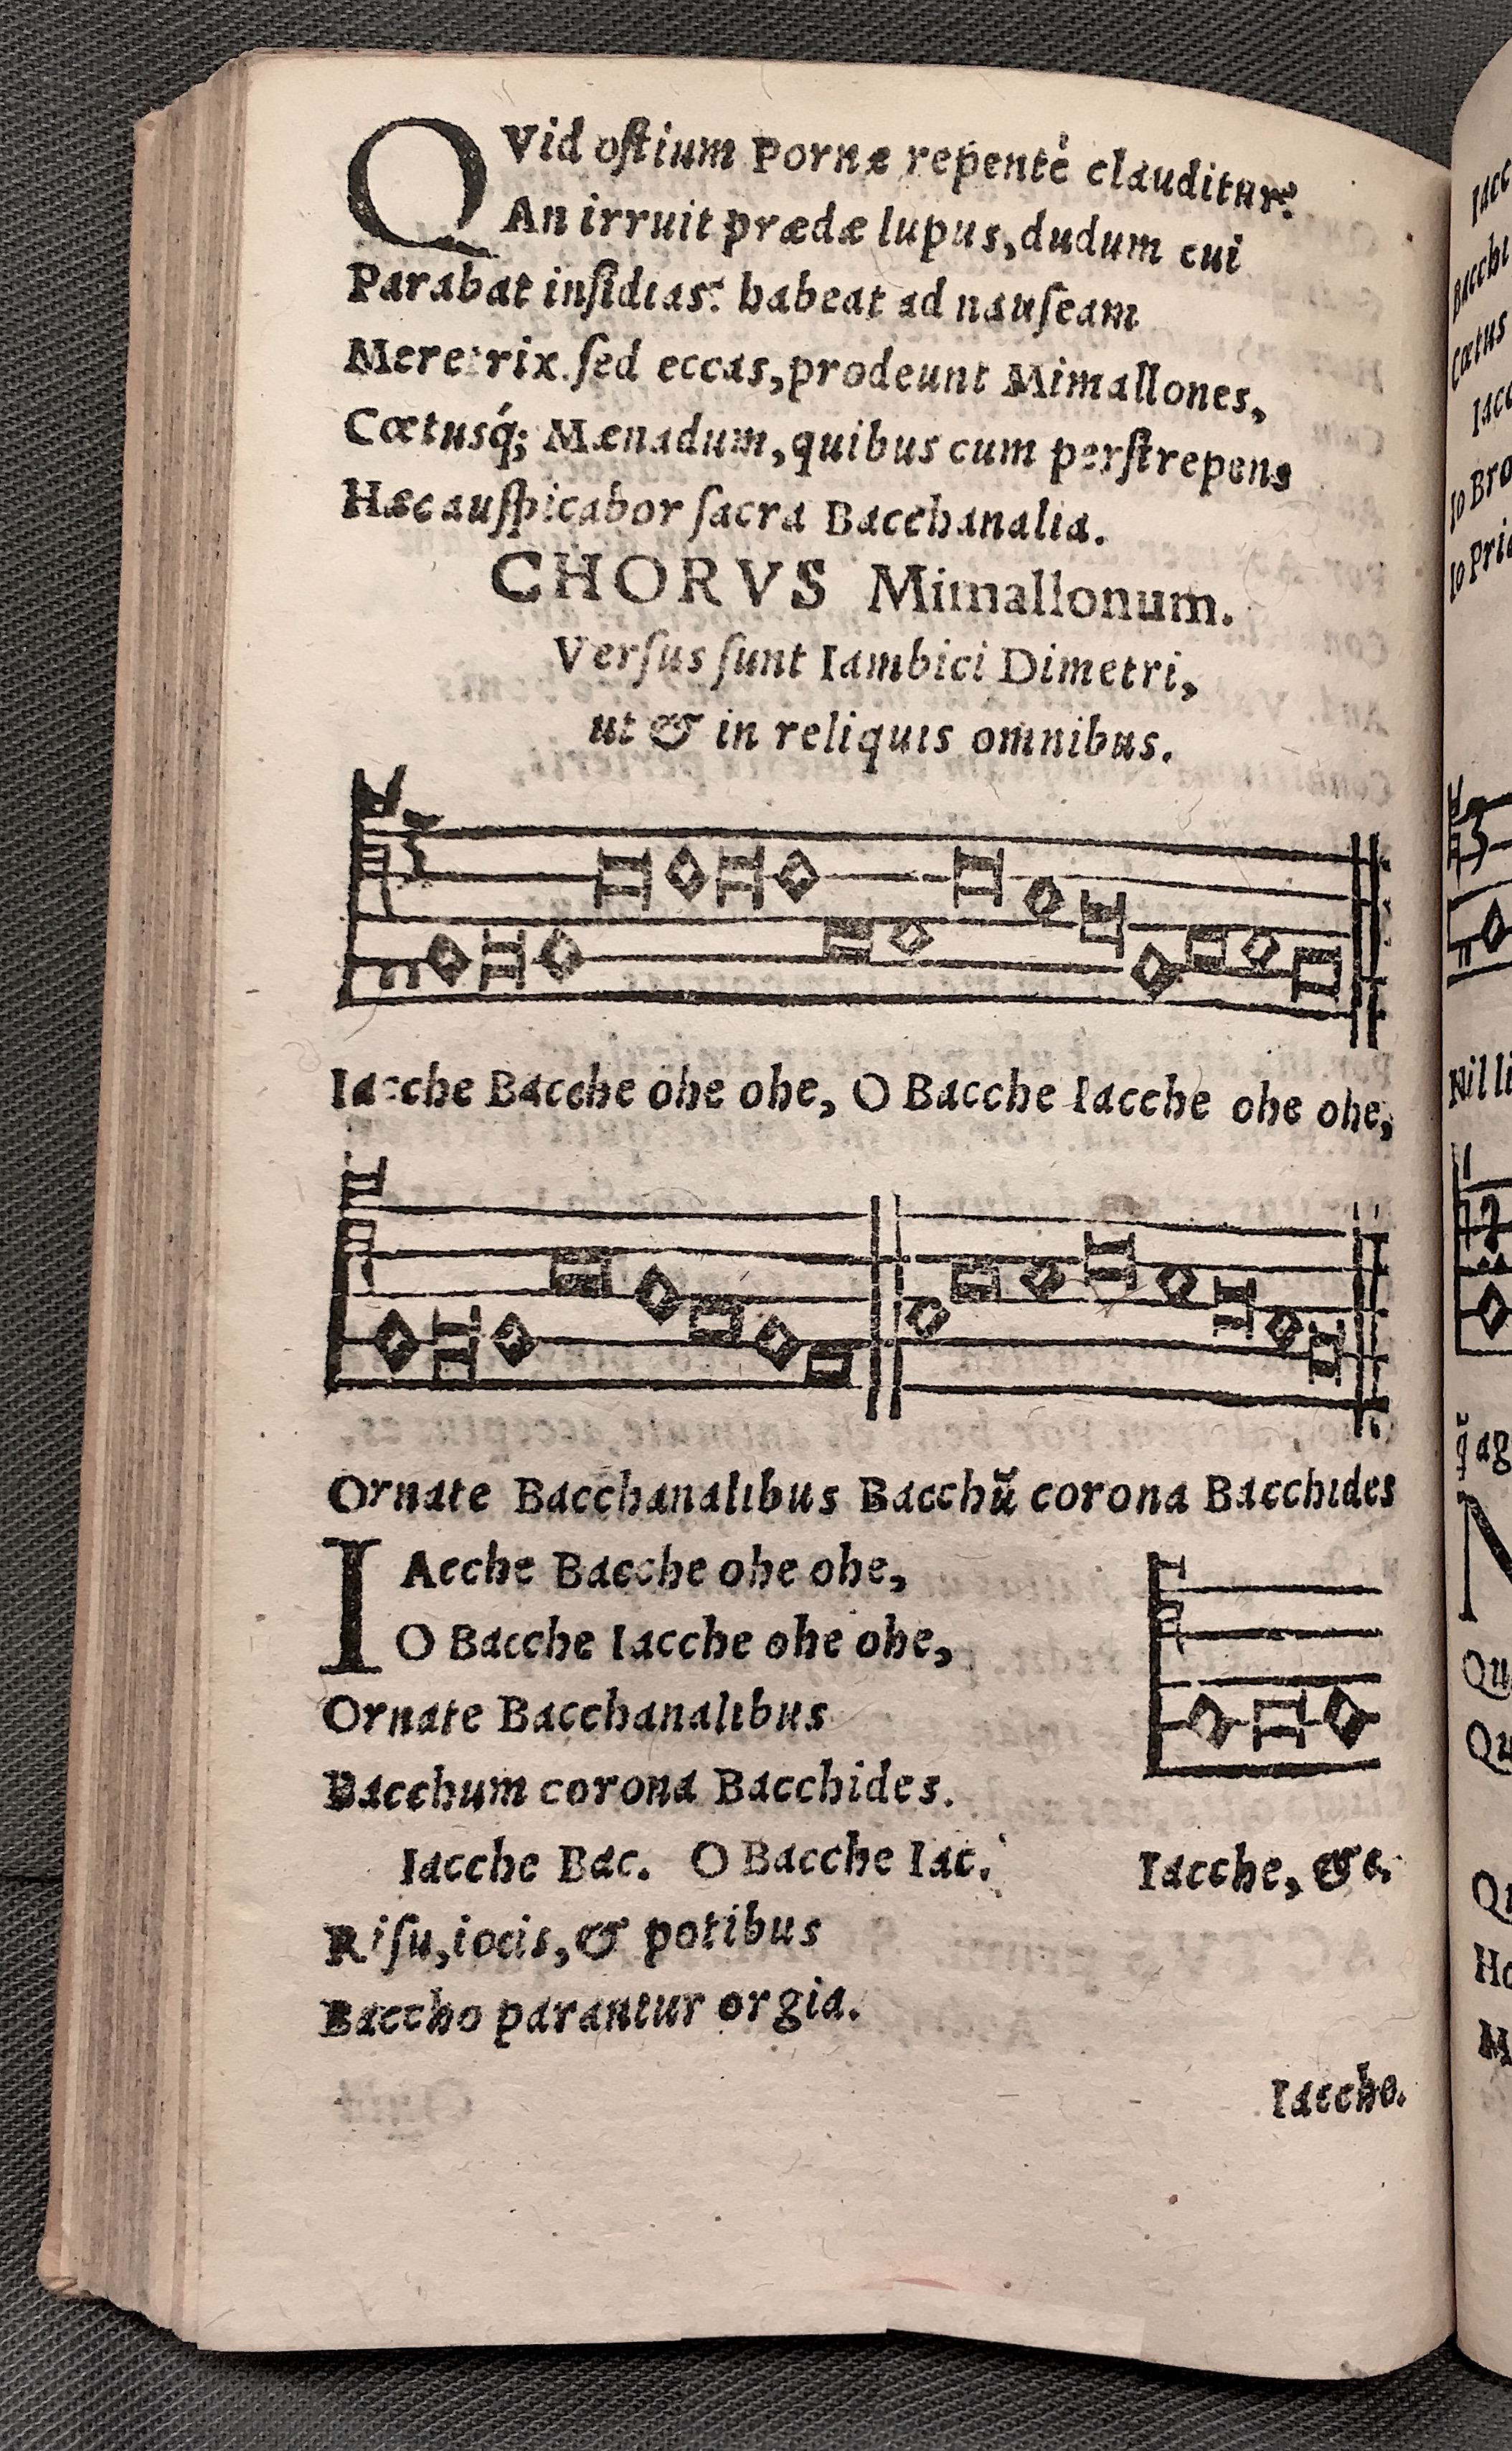 QVid oſtium Pornæ repentè clauditur?
An irruit prædæ lupus, dudum cui
Parabat inſidias? habeat ad nauſeam
Meretrix. ſed eccas, prodeunt Mimallones,
Cœtusq́; Mænadum, quibus cum perſtrepens
Hæc auſpicabor ſacra Bacchanalia.
CHORVS Mimallonum.
Verſus ſunt Iambici Dimetri,
ut & in reliquis omnibus.
Iacche Bacche ohe ohe, O Bacche Iacche ohe ohe,
Ornate Bacchanalibus Bacchũ corona Bacchides
IAcche Bacche ohe ohe,
O Bacche Iacche ohe ohe,
Ornate Bacchanalibus
Bacchum corona Bacchides.
Iacche Bac. O Bacche Iac. Iacche, &c.
Riſu, iocis, & potibus
Baccho parantur orgia.
Iaccho.